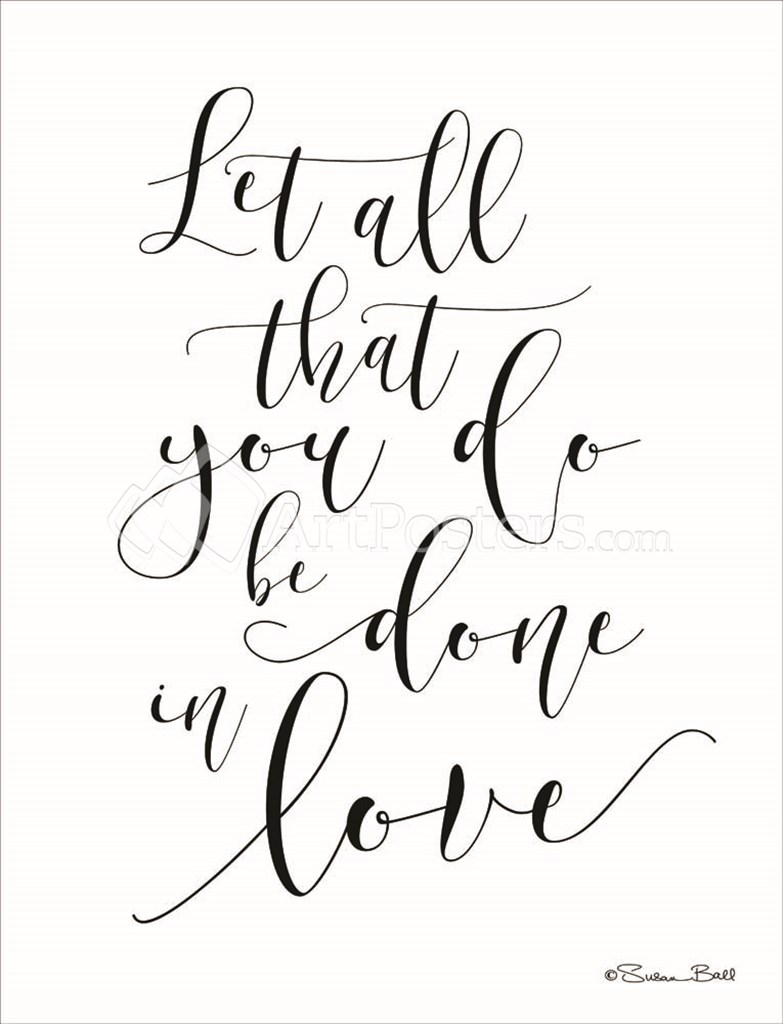 Let all
that
you do
ArtPosters.com
be
done
in
love
©Susan Ball